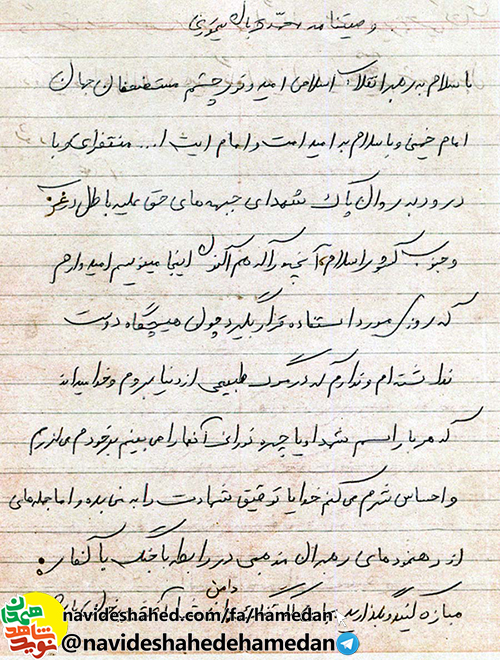 وصیتنامه محمدی
با سلام به رهبر انقلاب اسلامی امید و نور چشم مستضعفان جهان
امام خمینی و با سلام به امید امت و امام آیت ا... منتظری و با
درود به روان پاک شهدای جبهه‌های حق علیه باطل در غرب
و جنوب کشور اسلام آنچه را که هم اکنون اینجا مینویسم امیدوارم
که روزی مورد استفاده قرار بگیرد چون هیچگاه دوست
نداشته‌ام و ندارم که در مرگ طبیعی از دنیا بروم و خدا میداند
که هر بار اسم شهدا و یا چهره نورانی آنها را می بینم بر خودم می لرزم
و احساس شرم می کنم خدایا توفیق شهادت را به من بده و اما جمله‌های
از رهنمودهای رهبران مذهبی در رابطه با جنگ با کفار:
مبارزه کنید و نگذارید دامن
navideshahed.com/fa/hamedan
@navideshahedehamedan
نوید شاهد همدان